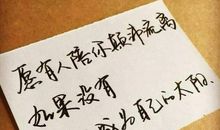 愿有人陪你颠沛流离
如果没有
成为自己的太阳